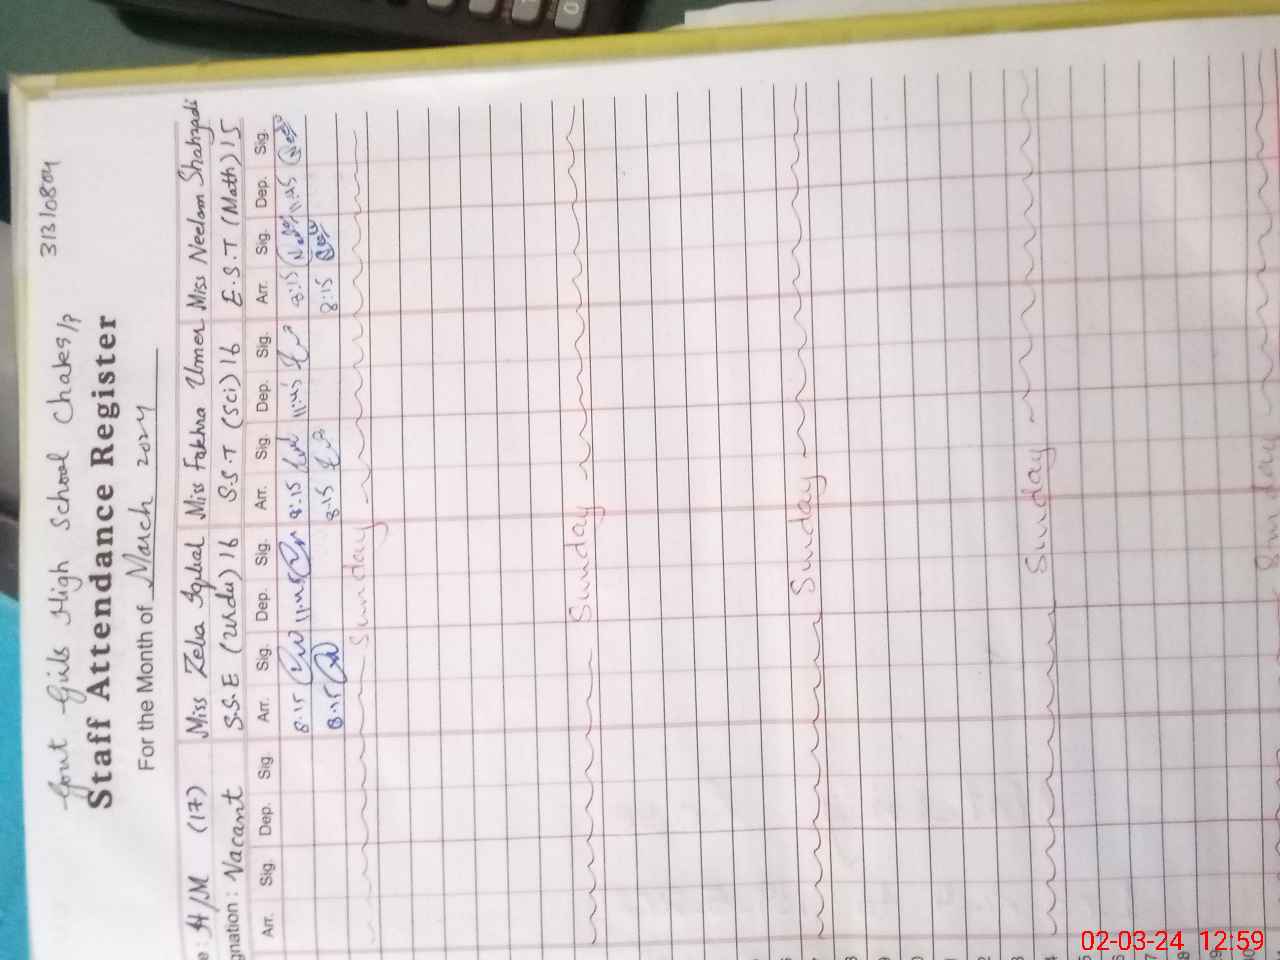 Govt Girls High School Chak 69/P 31310804
Staff Attendance Register
For the Month of March 2024
e : H/M (17) Miss Zeba Iqbal Miss Fakhra Umer Miss Neelam Shahzadi
gnation : Vacant S.S.E (Urdu) 16 S.S.T (Sci) 16 E.S.T (Math) 15
Arr. Sig. Dep. Sig. Arr. Sig. Dep. Sig. Arr. Sig. Dep. Sig. Arr. Sig. Dep. Sig.
8:15 11:45 8:15 11:45 8:15 11:45
8:15 8:15 8:15
Sunday
Sunday
Sunday
Sunday
Sunday
02-03-24 12:59